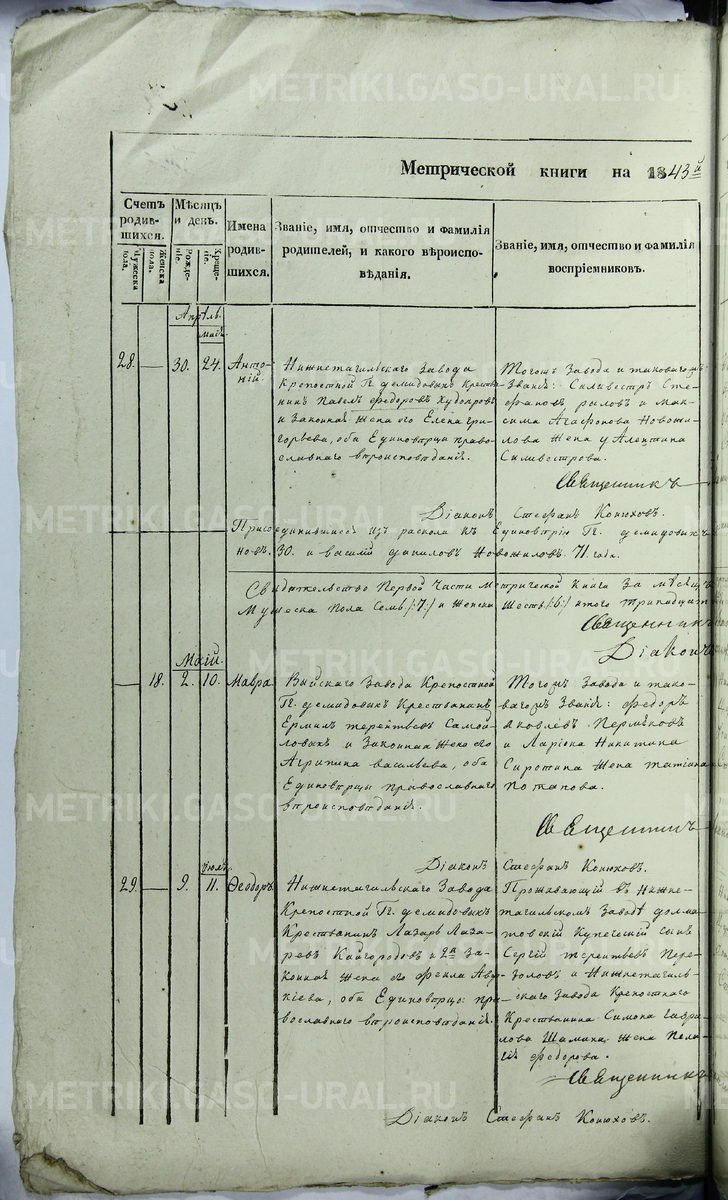 METRIKI.GASO-URAL.RU
Метрической книги на 1843й
Счетъ родившихся.
Мужеска пола.
Женска пола.
Мѣсяцъ и день.
Рожденіе.
Крещеніе.
Имена родившихся.
Званіе, имя, отчество и фамилія
родителей, и какого вѣроиспо-
вѣданія.
Званіе, имя, отчество и фамилія
воспріемниковъ.
Апрѣль.
маій
28. — 30. 24. Анто-
ній.
Нижнетагильскаго Завода
Крепостной Гг. демидовыхъ Крестья-
нинъ Павелъ Федоровъ Худояровъ
и Законная жена его Елена Гри-
горьева, оба Единовѣрцы право-
славнаго вѣроисповѣданія.
Тогожъ Завода и таковагожъ
Званія: Силивестръ Сте-
фановъ рыловъ и мак-
сима Агафонова Новожи-
лова жена
Силивестрова.
Священникъ
Діаконъ Стефанъ Конюховъ.
Присоединившіеся изъ раскола къ Единовѣрію Гг. демидовыхъ
30. и василій даниловъ Новожиловъ. 71 года.
Свидѣтельство Первой Части Метрической Книги За мѣсяцъ
Мужеска Пола Семь /:7:/ и Женска Шесть /:6:/ итого тринадцать
Священникъ
Діаконъ
Маій.
— 18. 2. 10. Мавра
Выйскаго Завода Крепостной
Гг. демидовыхъ Крестьянинъ
Ермилъ терентьевъ Самой-
ловыхъ и Законная Жена его
Агрипина васильева, оба
Единовѣрцы православнаго
вѣроисповѣданія.
Тогожъ Завода и тако-
вагожъ Званія: Федоръ
Яковлевъ Пермяковъ
и Ларіона Никитина
Сиротина жена татіана
Потапова.
Священникъ
Діаконъ Стефанъ Конюховъ.
іюля
29. — 9. 11. Ѳеодоръ
Нижнетагильскаго Завода
Крепостной Гг. демидовыхъ
Крестьянинъ Лазарь Лаза-
ревъ Кайгородовъ и 2я За-
конная жена его Фекла Авде-
кіева, оба Единовѣрцы пра-
вославнаго вѣроисповѣданія.
Проживающій въ Нижне-
тагильскомъ Заводѣ долма-
товскій Купеческій Сынъ
Сергій терентьевъ Пере-
золовъ и Нижнетагиль-
скаго Завода Крепостнаго
Крестьянина Симона гаври-
лова Шамина жена Пела-
гія федорова.
Священникъ
Діаконъ Стефанъ Конюховъ.